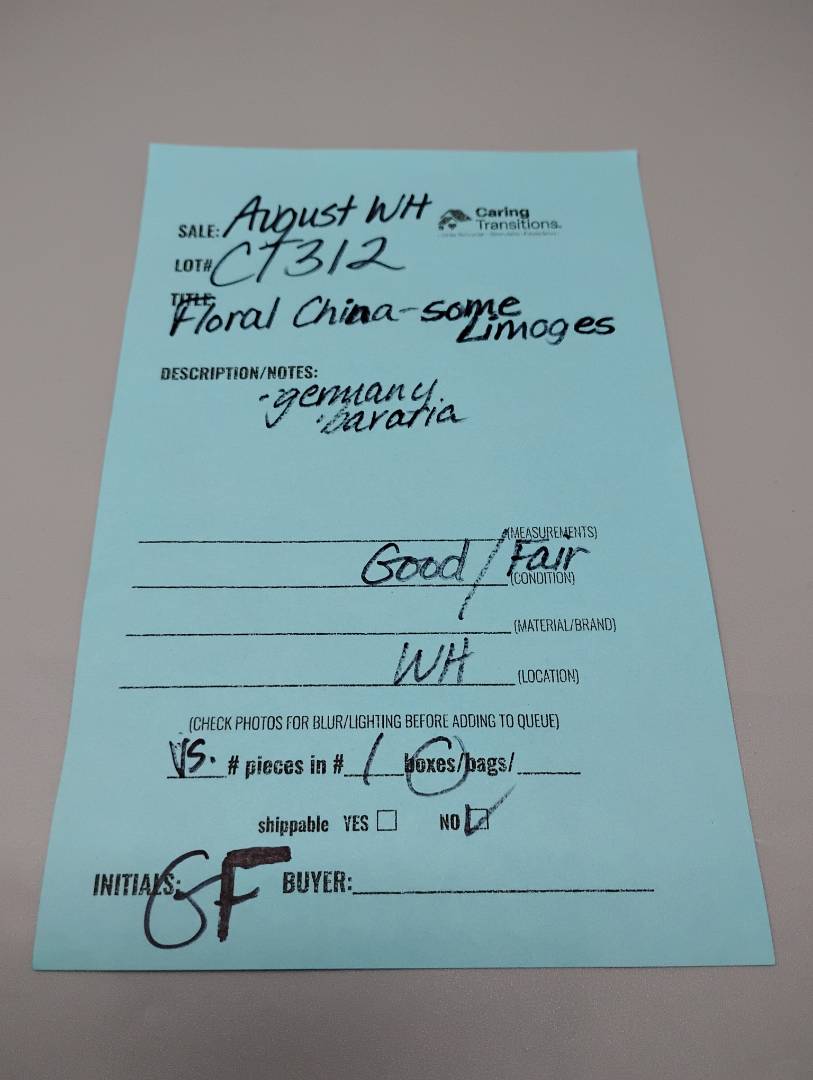 SALE: August WH
Caring
Transitions
LOT# CT312
TITLE:
Floral China - some
Limoges
DESCRIPTION/NOTES:
- germany
- bavaria
(MEASUREMENTS)
Good / Fair
(CONDITION)
(MATERIAL/BRAND)
WH
(LOCATION)
(CHECK PHOTOS FOR BLUR/LIGHTING BEFORE ADDING TO QUEUE)
VS. # pieces in # 1 boxes/bags/
shippable YES NO
INITIALS: GF BUYER: